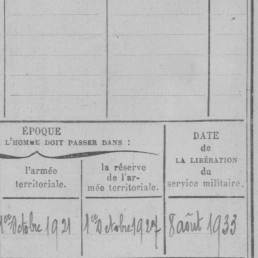 ÉPOQUE
L'HOMME DOIT PASSER DANS :
l'armée
territoriale.
la réserve
de l'ar-
mée territoriale.
DATE
de
LA LIBÉRATION
du
service militaire.
1er Octobre 1921
1er Octobre 1927
8 août 1933